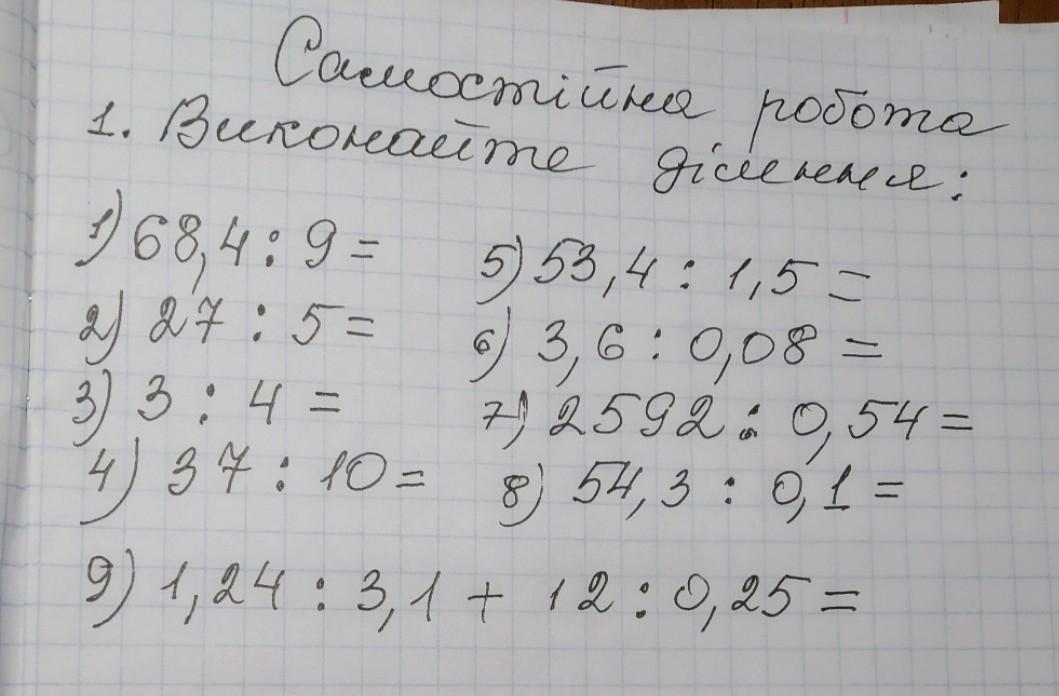 Самостійна робота
1. Виконайте ділення:
1) 68,4 : 9 =
2) 27 : 5 =
3) 3 : 4 =
4) 37 : 10 =
5) 53,4 : 1,5 =
6) 3,6 : 0,08 =
7) 2592 : 0,54 =
8) 54,3 : 0,1 =
9) 1,24 : 3,1 + 12 : 0,25 =